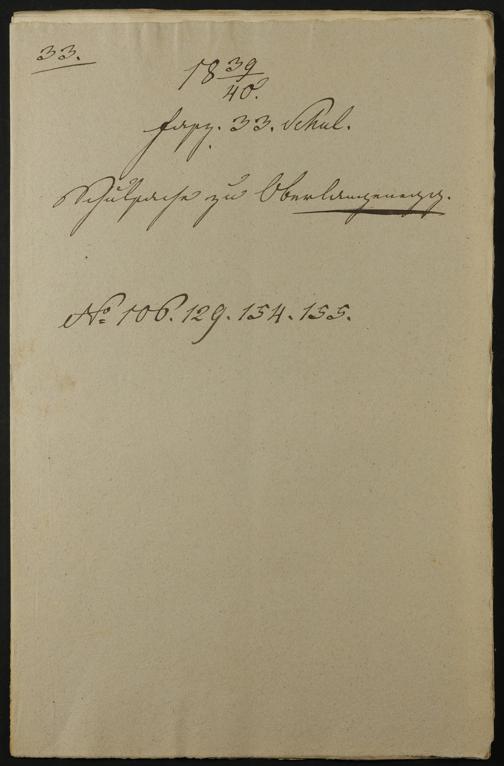 33.
18 39/40.
Fasz. 33. Schul.
Schulsache zu Oberlangenegg.
No 106. 129. 154. 155.